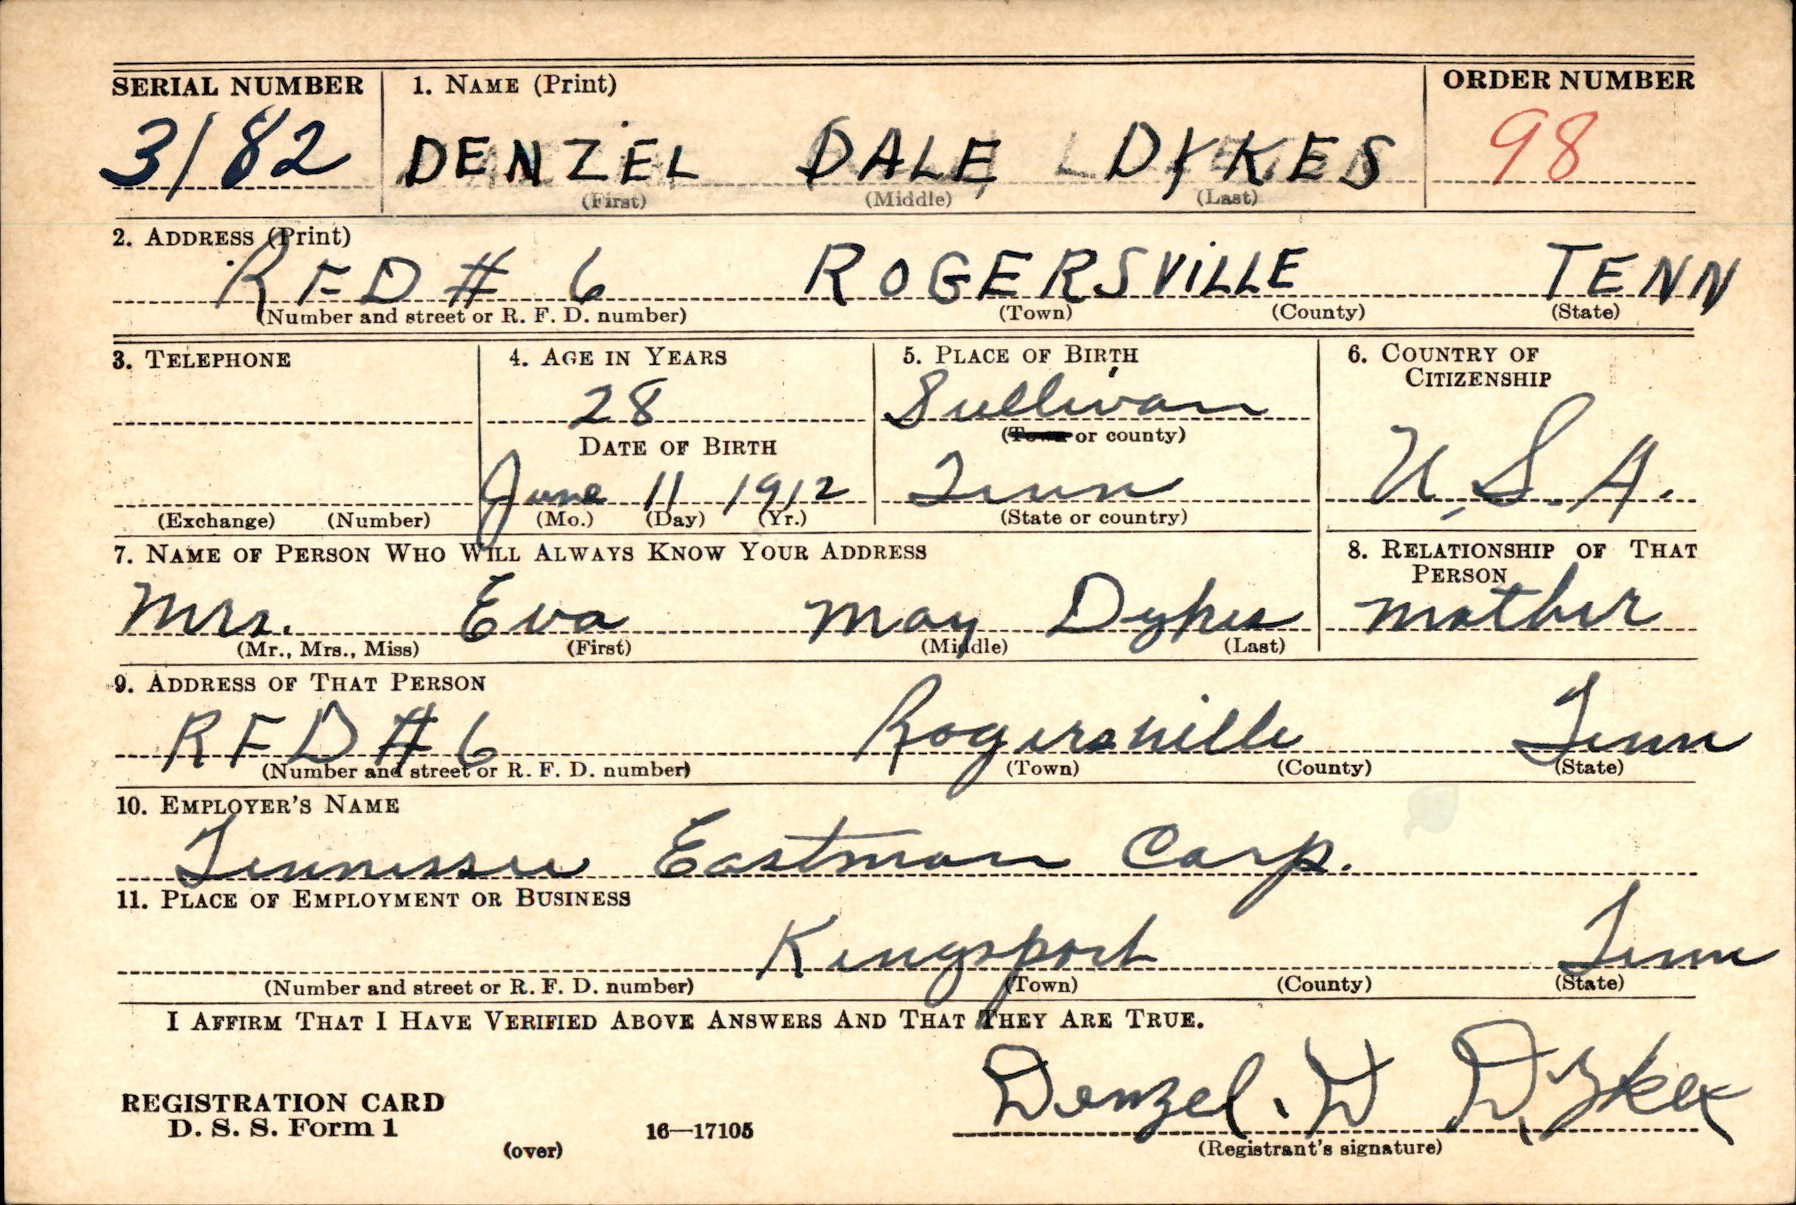 SERIAL NUMBER 1. NAME (Print) ORDER NUMBER
3182 DENZEL DALE DYKES 98
(First) (Middle) (Last)
2. ADDRESS (Print)
RFD # 6 ROGERSVILLE TENN
(Number and street or R. F. D. number) (Town) (County) (State)
3. TELEPHONE 4. AGE IN YEARS 5. PLACE OF BIRTH 6. COUNTRY OF CITIZENSHIP
28 Sullivan
DATE OF BIRTH (Town or county)
June 11 1912 Tenn U.S.A.
(Exchange) (Number) (Mo.) (Day) (Yr.) (State or country)
7. NAME OF PERSON WHO WILL ALWAYS KNOW YOUR ADDRESS 8. RELATIONSHIP OF THAT PERSON
Mrs. Eva May Dykes mother
(Mr., Mrs., Miss) (First) (Middle) (Last)
9. ADDRESS OF THAT PERSON
RFD #6 Rogersville Tenn
(Number and street or R. F. D. number) (Town) (County) (State)
10. EMPLOYER'S NAME
Tennessee Eastman Corp.
11. PLACE OF EMPLOYMENT OR BUSINESS
Kingsport Tenn
(Number and street or R. F. D. number) (Town) (County) (State)
I AFFIRM THAT I HAVE VERIFIED ABOVE ANSWERS AND THAT THEY ARE TRUE.
Denzel. D Dykes
REGISTRATION CARD
D. S. S. Form 1 (over) 16—17105 (Registrant's signature)